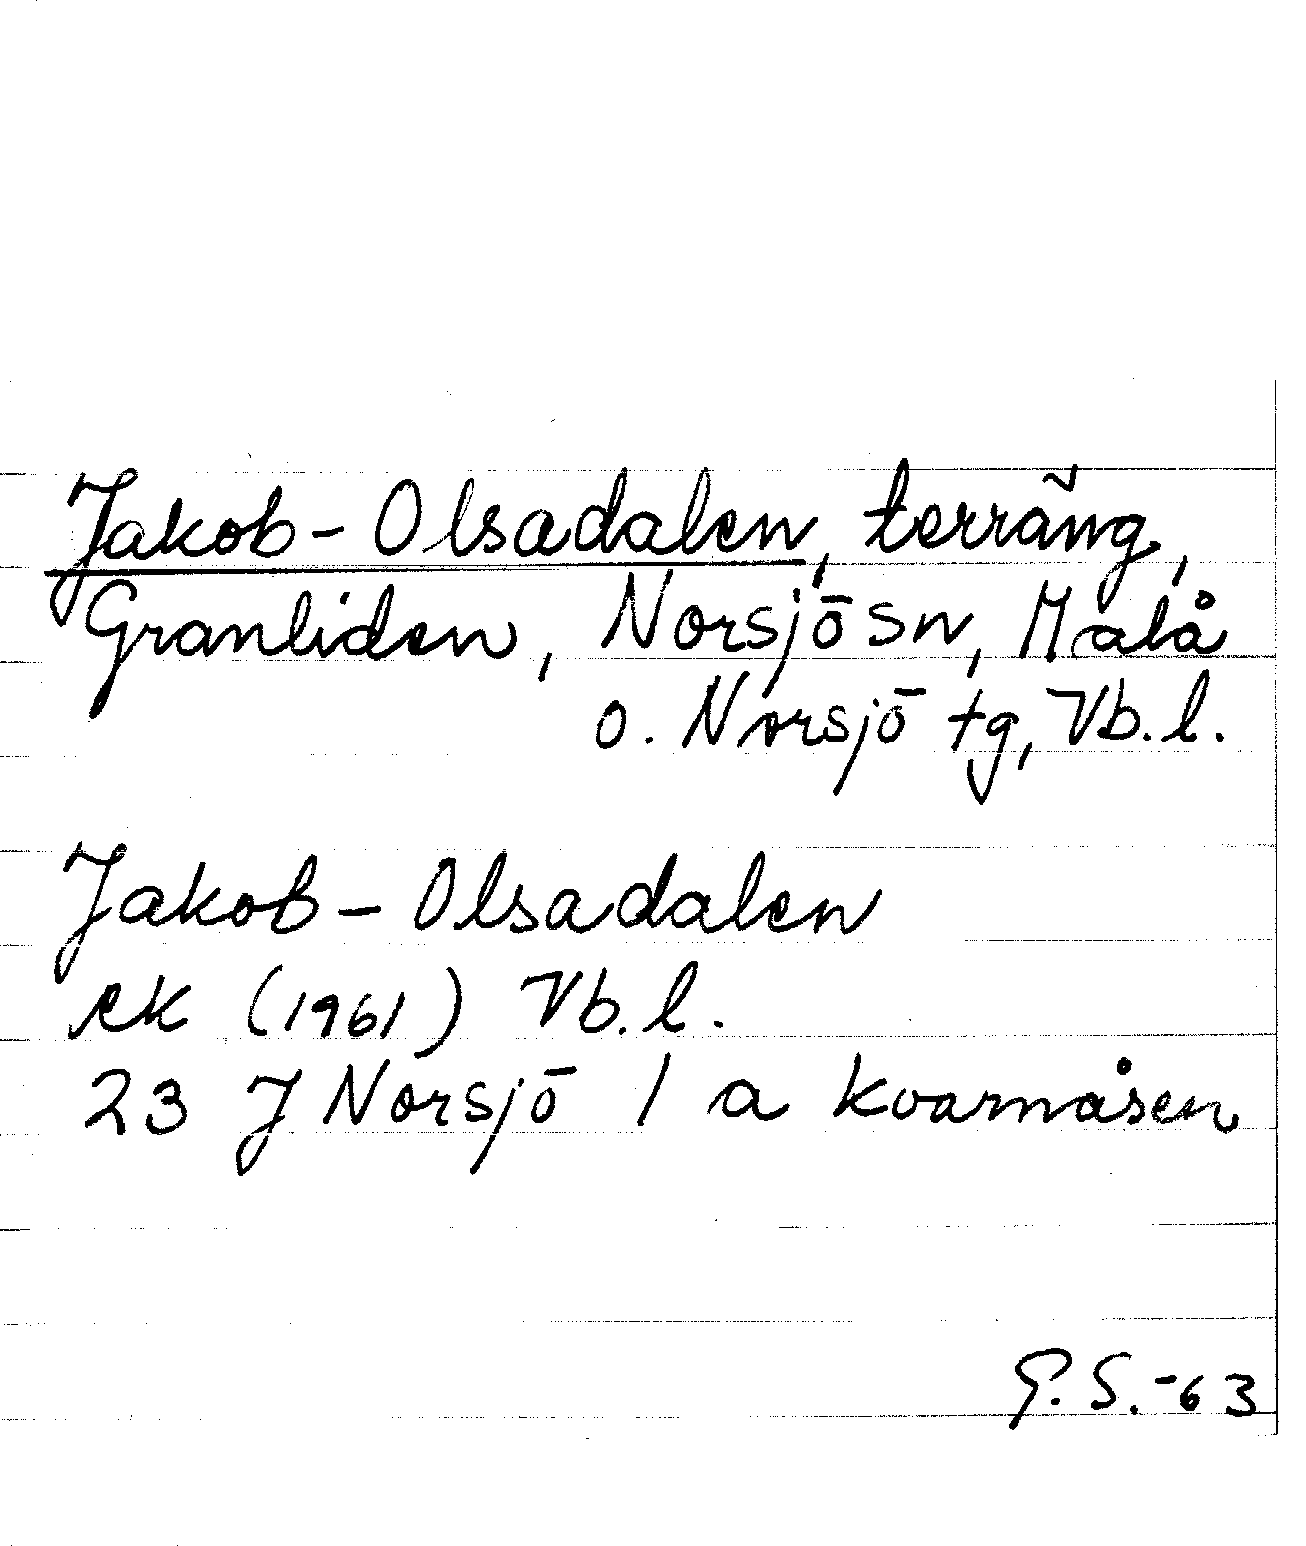 Jakob-Olsadalen, terräng,
Granliden, Norsjö sn, Malå
o. Norsjö tg, Vb. l.
Jakob-Olsadalen
ek (1961) Vb. l.
23 J Norsjö 1 a Kvarnåsen
G. S. -63